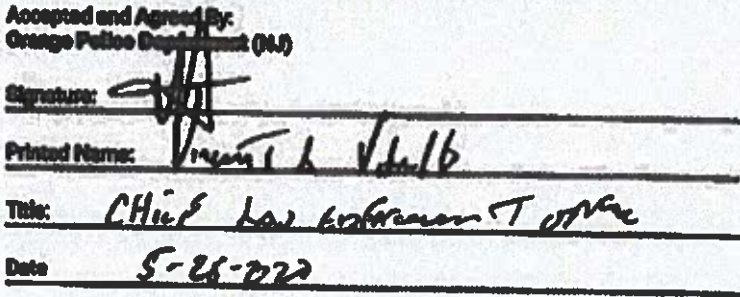 Accepted and Agreed By:
Orange Police Department (NJ)
Signature:
Printed Name: Vincent L
Title: CHief Law Enforcement officer
Date 5-26-2020